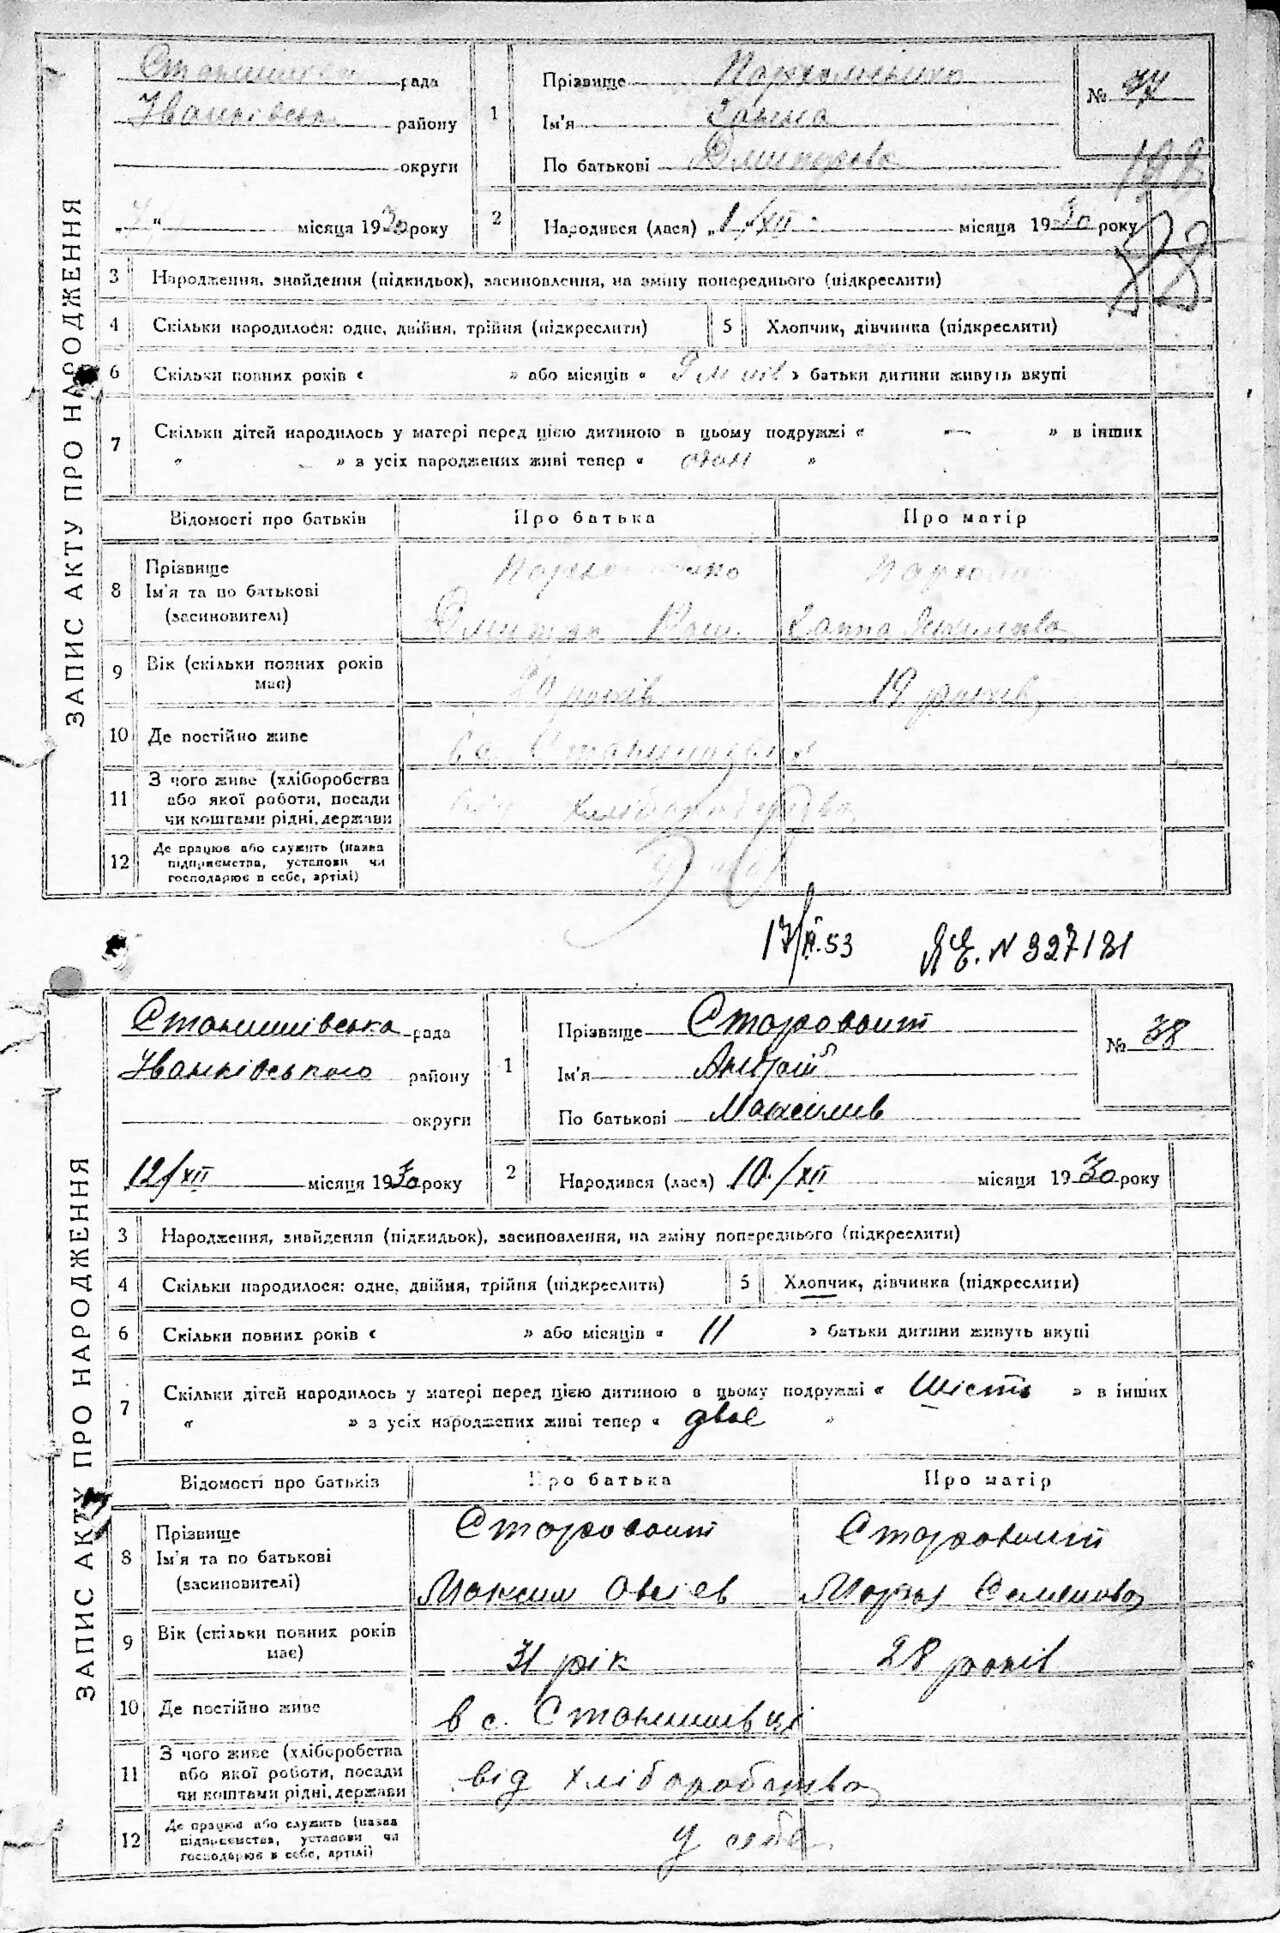 ЗАПИС АКТУ ПРО НАРОДЖЕННЯ
рада
Іванківськ району
округи
місяця 1930 року
1
Прізвище Пархоменко
Ім'я Ганна
По батькові Дмитрова
№ 37
198
88
2 Народився (лася) „1/XII місяця 1930 року
3 Народження, знайдення (підкидьок), засиновлення, на зміну попереднього (підкреслити)
4 Скільки народилося: одне, двійня, трійня (підкреслити) 5 Хлопчик, дівчинка (підкреслити)
6 Скільки повних років « » або місяців « 9 » батьки дитини живуть вкупі
7 Скільки дітей народилось у матері перед цією дитиною в цьому подружжі « — » в інших
« — » з усіх народжених живі тепер « »
Відомості про батьків Про батька Про матір
8 Прізвище Пархоменко
Ім'я та по батькові
(засиновителі) Дмитро Ганна
9 Вік (скільки повних років 20 років 19 років
має)
10 Де постійно живе в с.
11 З чого живе (хліборобства
або якої роботи, посади від хліборобства
чи коштами рідні, держави
12 Де працює або служить (назва
підприємства, установи чи
господарює в себе, артілі)
17/II.53 ЯЄ. N 327181
ЗАПИС АКТУ ПРО НАРОДЖЕННЯ
Станишівська рада
Іванківського району
округи
12/XII місяця 1930 року
1
Прізвище Старовойт
Ім'я Андрій
По батькові Максимів
№ 38
2 Народився (лася) 10/XII місяця 1930 року
3 Народження, знайдення (підкидьок), засиновлення, на зміну попереднього (підкреслити)
4 Скільки народилося: одне, двійня, трійня (підкреслити) 5 Хлопчик, дівчинка (підкреслити)
6 Скільки повних років « » або місяців « 11 » батьки дитини живуть вкупі
7 Скільки дітей народилось у матері перед цією дитиною в цьому подружжі « шість » в інших
« » з усіх народжених живі тепер « двоє »
Відомості про батьків Про батька Про матір
8 Прізвище Старовойт Старовойт
Ім'я та по батькові
(засиновителі) Максим Марія Семенова
9 Вік (скільки повних років 31 рік 28 років
має)
10 Де постійно живе в с. Станишівці
11 З чого живе (хліборобства
або якої роботи, посади від хліборобства
чи коштами рідні, держави
12 Де працює або служить (назва у себе
підприємства, установи чи
господарює в себе, артілі)